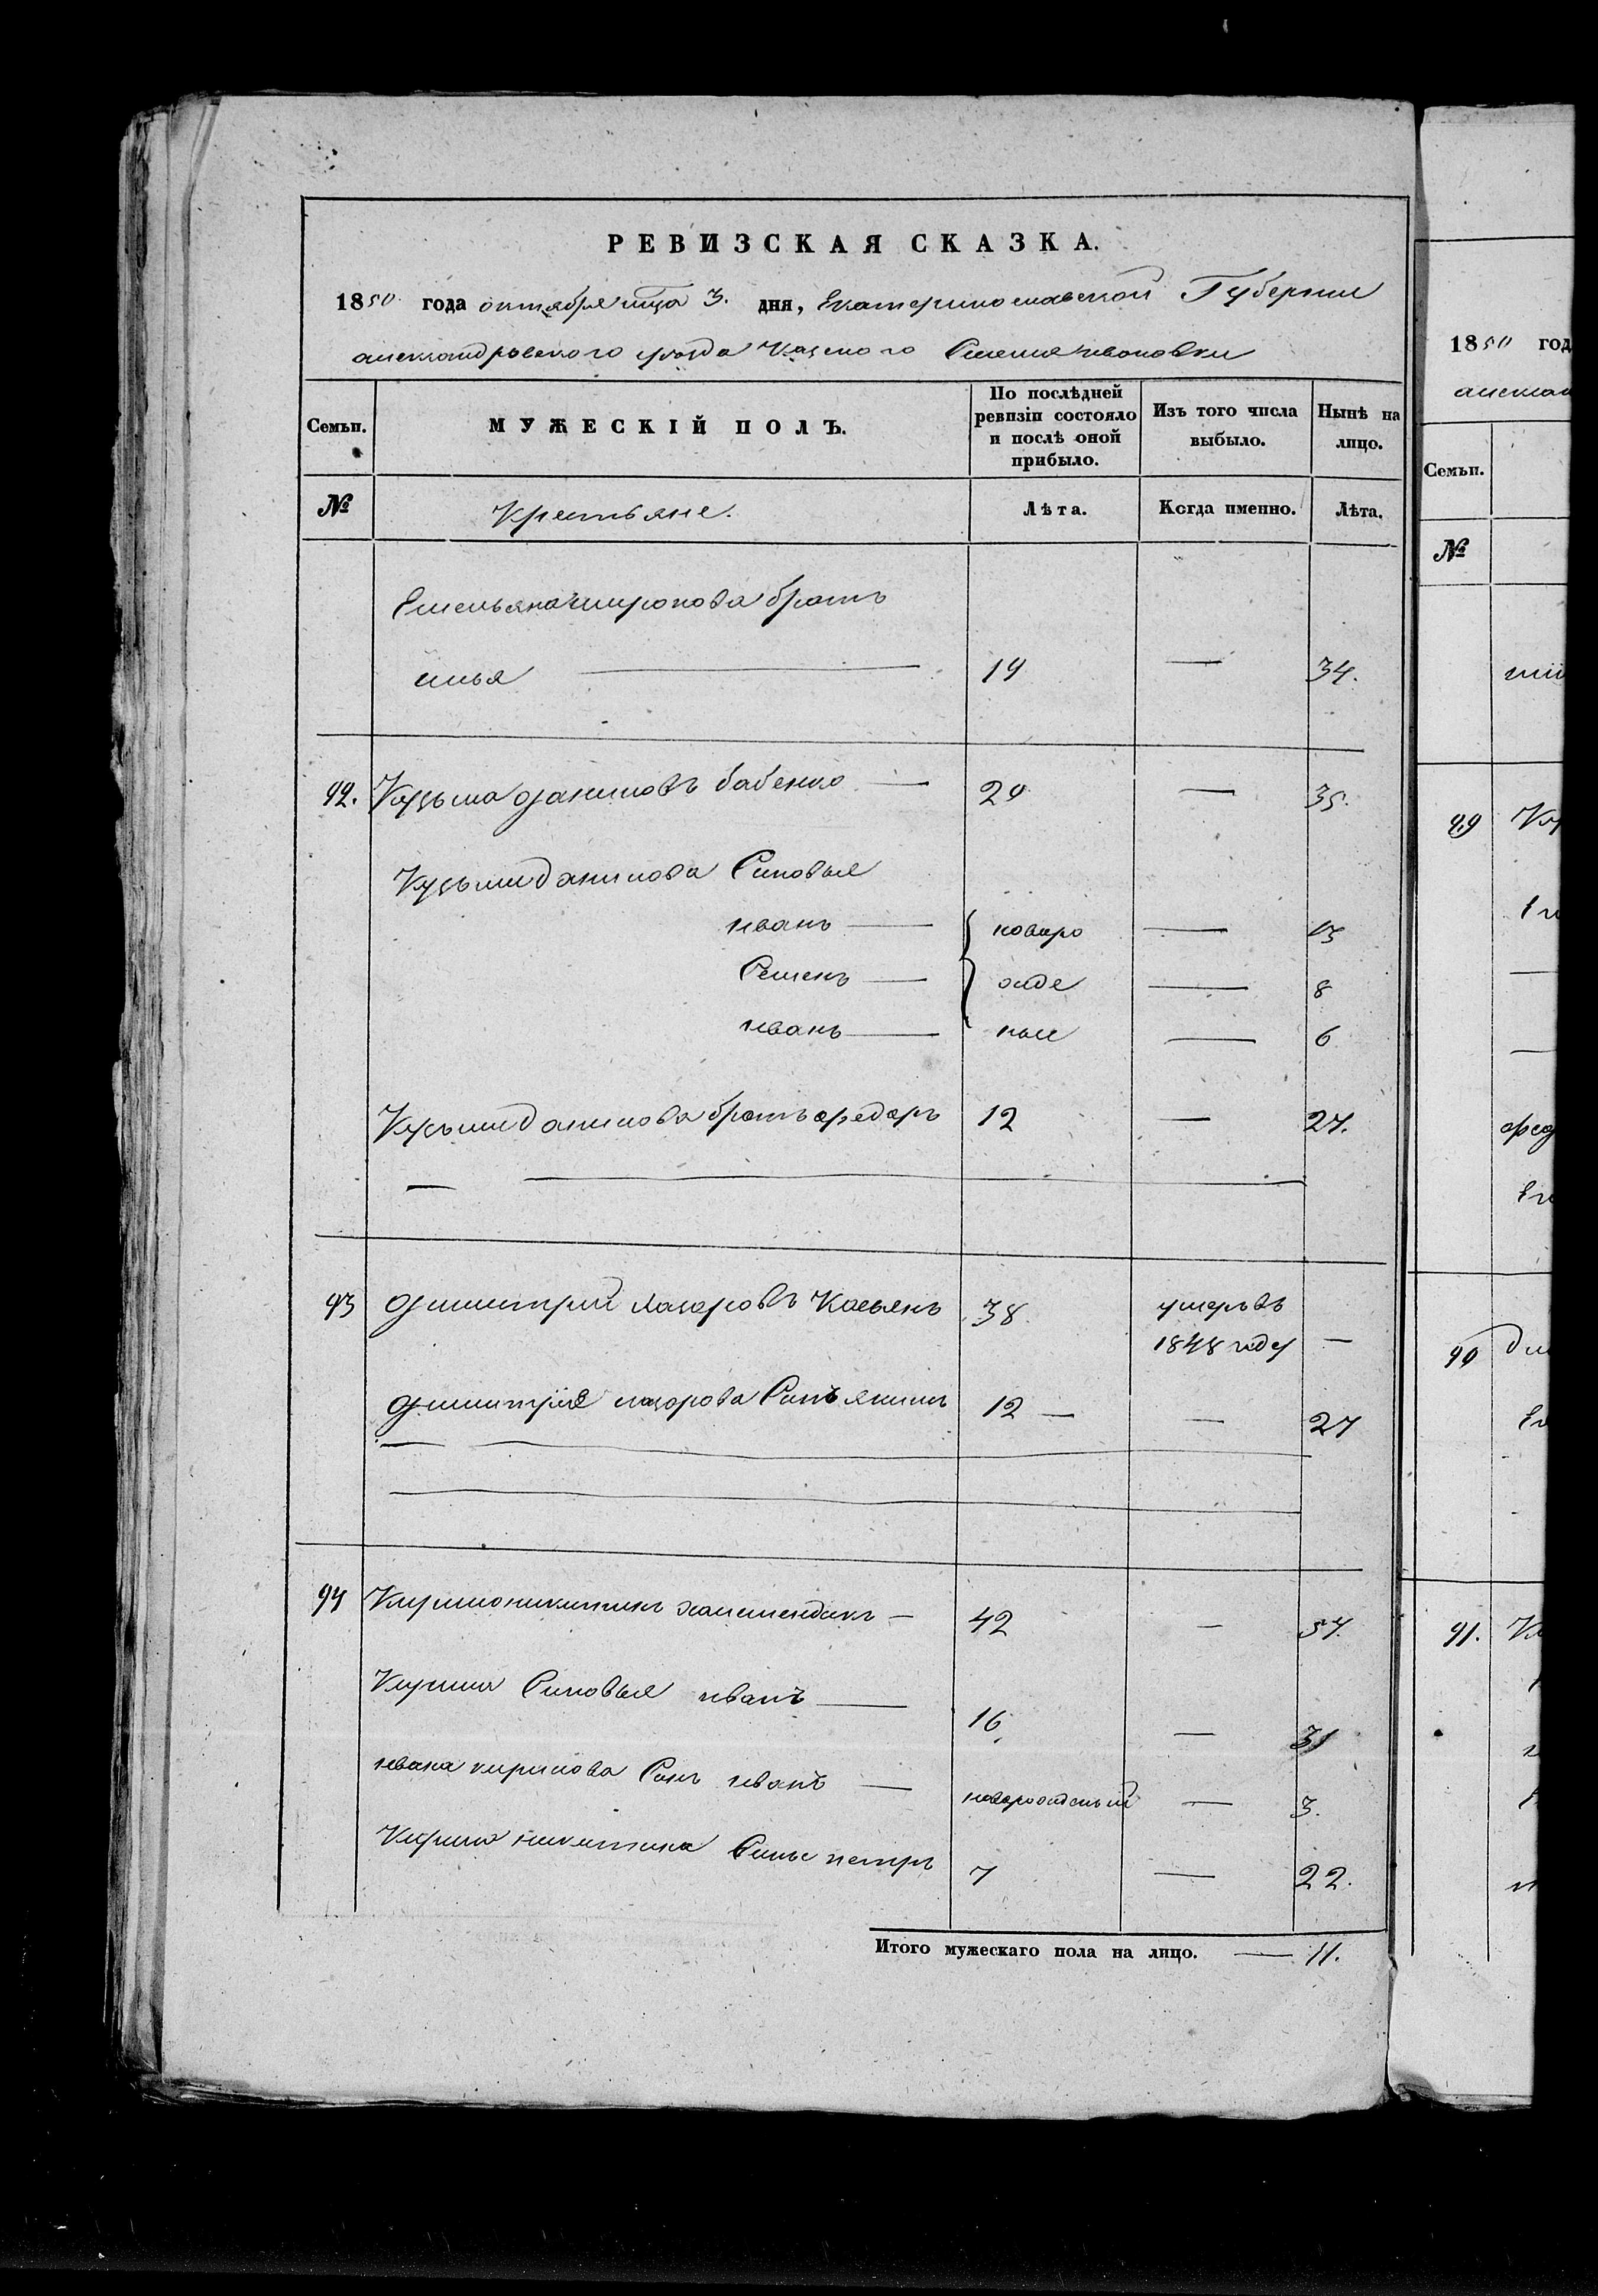 РЕВИЗСКАЯ СКАЗКА.
1850 года октября мца 3. дня, Екатеринославской Губернии
александровского уезда Казеного Селения ивановки
Семьи. МУЖЕСКІЙ ПОЛЪ. По послѣдней ревизіи состояло и послѣ оной прибыло. Изъ того числа выбыло. Нынѣ на лицо.
№ Крестьяне. Лѣта. Когда именно. Лѣта.
Емельяна миронова братъ
илья — 19 — 34.
92. Кузьма даниловъ бабенко — 20 — 35.
Кузьмы данилова Сыновья
иванъ — новоро — 13
Семенъ — жде — 8
иванъ — ные — 6
Кузьмы данилова братъ федоръ 12 — 27.
93 дмитрий лазоровъ Касьянъ 38. умеръ въ
1848 году —
дмитрия лазорова Сынъ якимъ 12 — — 27
94 Кирило никитинъ — 42 — 57.
Кирила Сыновья иванъ — 16 — 31
ивана кирилова Сынъ иванъ — новорожденый — 3.
Кирила никитина Сынъ петръ 7 — 22.
Итого мужескаго пола на лицо. — 11.
1850 год
Семьи.
№
89
90
91.